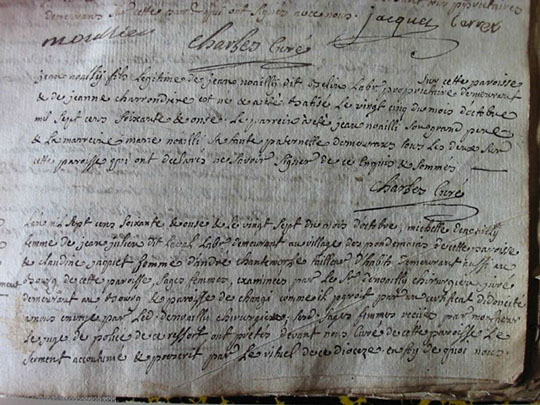 demeurans sur cette paroisse qui ont signés avec nous. jacque Carré
moulier Charles Curé
jean noailly fils Legitime de jean noailly dit Labr proprietaire demeurant sur cette paroisse
& de jeanne charrondiere est né & a été batisé Le vingt cinq du mois doctobre
mil sept cens soixante & onse. Le parrein a été jean noailli son grand pere
& La marreine marie noailli sa tante paternelle demeurans tous Les deux sur
cette paroisse qui ont declarés ne savoir signer de ce Enquis & sommés
Charles Curé
Lan mil sept cens soixante & onse & le vingt sept du mois doctobre, michelle
femme de jean dit Laval Labr demeurant au village des de cette parroisse
& claudine jaquet femme dandré tailleur dhabits demeurant aussi au
bourg de cette paroisse, sages femmes, examinées par Le Sr denoailly chirurgien juré
demeurant au bourg & paroisse de changi comme il paroit par un certificat
a nous envoyé par Led. denoailly chirurgien, sages femmes reçues par
Le juge de police de ce ressort ont pretés devant nous Curé de cette paroisse Le
serment accoutumé & prescrit par Le rituel de ce dioceze en foy de quoi nous